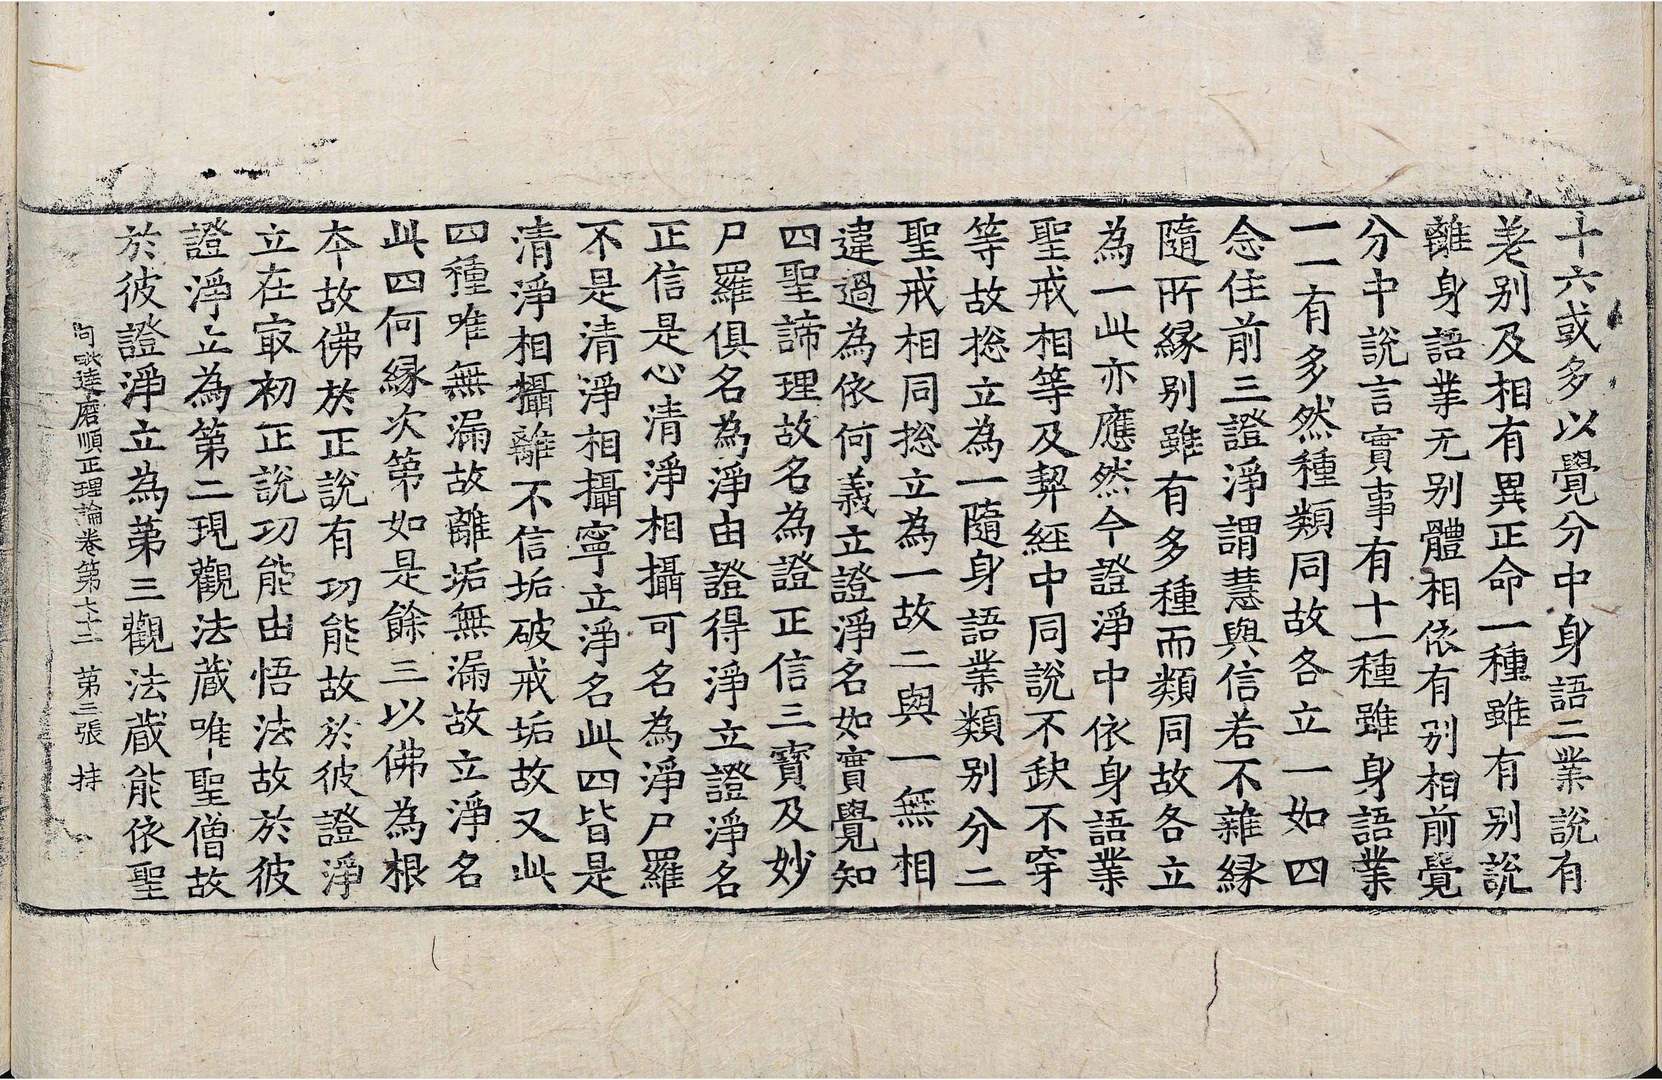 十六或多以覺分中身語二業說有
差别及相有異正命一種雖有别說
離身語業无别體相依有别相前覺
分中說言實事有十一種雖身語業
一一有多然種類同故各立一如四
念住前三證淨謂慧與信若不雜縁
隨所縁别雖有多種而類同故各立
為一此亦應然今證淨中依身語業
聖戒相等及契經中同說不缺不穿
等故揔立為一隨身語業類别分二
聖戒相同揔立為一故二與一無相
違過為依何義立證淨名如實覺知
四聖諦理故名為證正信三寶及妙
尸羅俱名為淨由證得淨立證淨名
正信是心清淨相攝可名為淨尸羅
不是清淨相攝寧立淨名此四皆是
清淨相攝離不信垢破戒垢故又此
四種唯無漏故離垢無漏故立淨名
此四何縁次第如是餘三以佛為根
夲故佛於正說有功能故於彼證淨
立在㝡初正說功能由悟法故於彼
證淨立為第二現觀法蔵唯聖僧故
於彼證淨立為第三觀法蔵能依聖
毗達磨順正理論卷第七十二 第三張 持